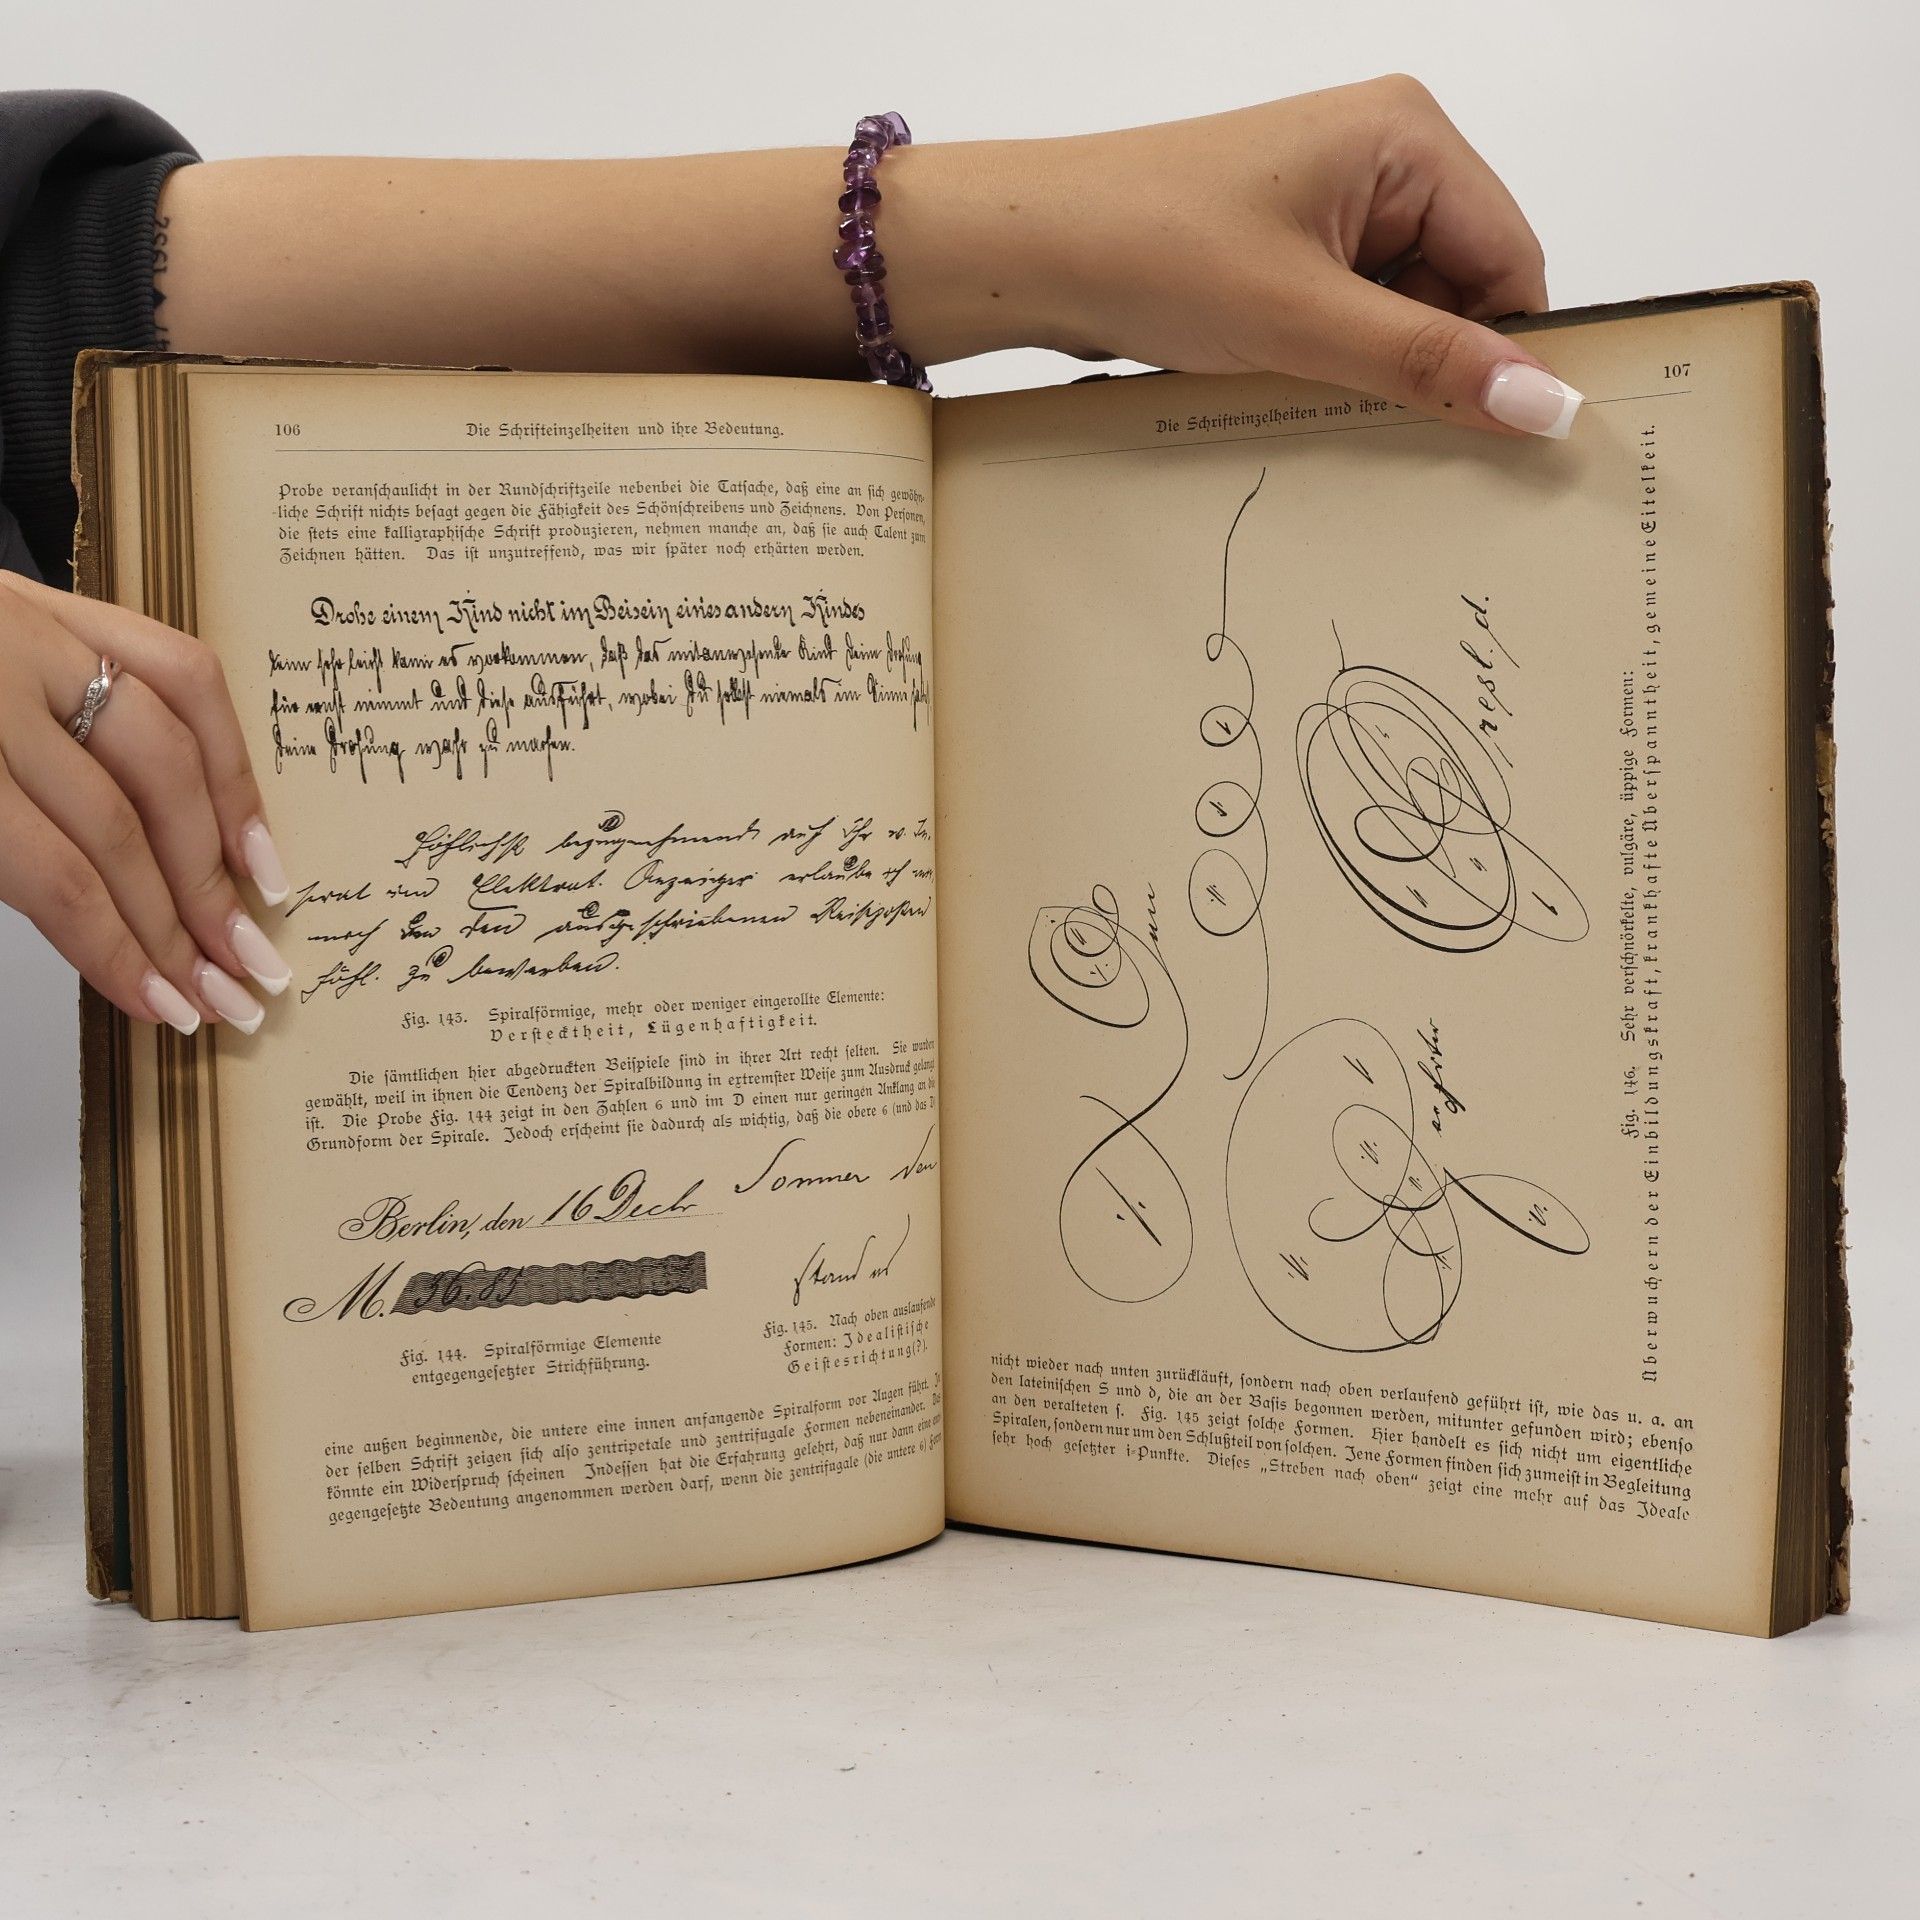 1932
106
Die Schrifteinzelheiten und ihre Bedeutung.
Probe veranschaulicht in der Rundschriftzeile nebenbei die Tatsache, daß eine an sich gewöhn-
liche Schrift nichts besagt gegen die Fähigkeit des Schönschreibens und Zeichnens. Von Personen,
die stets eine kalligraphische Schrift produzieren, nehmen manche an, daß sie auch Talent zum
Zeichnen hätten. Das ist unzutreffend, was wir später noch erhärten werden.
Drohe einem Kind nicht im Beisein eines andern Kindes
denn sehr leicht kann es vorkommen, daß das mitanwesende Kind deine Drohung
für ernst nimmt und diese ausführt, wobei du selbst niemals im Sinne
deine Drohung wahr zu machen.
Höflichst bezugnehmend auf Ihr w. In-
serat im Elektrot. Anzeiger erlaube ich mir,
mich um den ausgeschriebenen Reiseposten
höfl. zu bewerben.
Fig. 143. Spiralförmige, mehr oder weniger eingerollte Elemente:
Verstecktheit, Lügenhaftigkeit.
Die sämtlichen hier abgedruckten Beispiele sind in ihrer Art recht selten. Sie wurden
gewählt, weil in ihnen die Tendenz der Spiralbildung in extremster Weise zum Ausdruck gelangt
ist. Die Probe Fig. 144 zeigt in den Zahlen 6 und im D einen nur geringen Anklang an die
Grundform der Spirale. Jedoch erscheint sie dadurch als wichtig, daß die obere 6 (und das D)
Berlin, den 16 Decbr
Sommer den
M. 36.85
stand es
Fig. 144. Spiralförmige Elemente
entgegengesetzter Strichführung.
Fig. 145. Nach oben auslaufende
Formen: Idealistische
Geistesrichtung(?).
eine außen beginnende, die untere eine innen anfangende Spiralform vor Augen führt. In
der selben Schrift zeigen sich also zentripetale und zentrifugale Formen nebeneinander. Das
könnte ein Widerspruch scheinen Indessen hat die Erfahrung gelehrt, daß nur dann eine
gegengesetzte Bedeutung angenommen werden darf, wenn die zentrifugale (die untere 6) Form
107
Die Schrifteinzelheiten und ihre
resl. d.
Fig. 146. Sehr verschnörkelte, vulgäre, üppige Formen:
Überwuchern der Einbildungskraft, krankhafte Überspanntheit, gemeine Eitelkeit.
nicht wieder nach unten zurückläuft, sondern nach oben verlaufend geführt ist, wie das u. a. an
den lateinischen S und d, die an der Basis begonnen werden, mitunter gefunden wird; ebenso
an den veralteten ſ. Fig. 145 zeigt solche Formen. Hier handelt es sich nicht um eigentliche
Spiralen, sondern nur um den Schlußteil von solchen. Jene Formen finden sich zumeist in Begleitung
sehr hoch gesetzter i-Punkte. Dieses „Streben nach oben“ zeigt eine mehr auf das Ideale